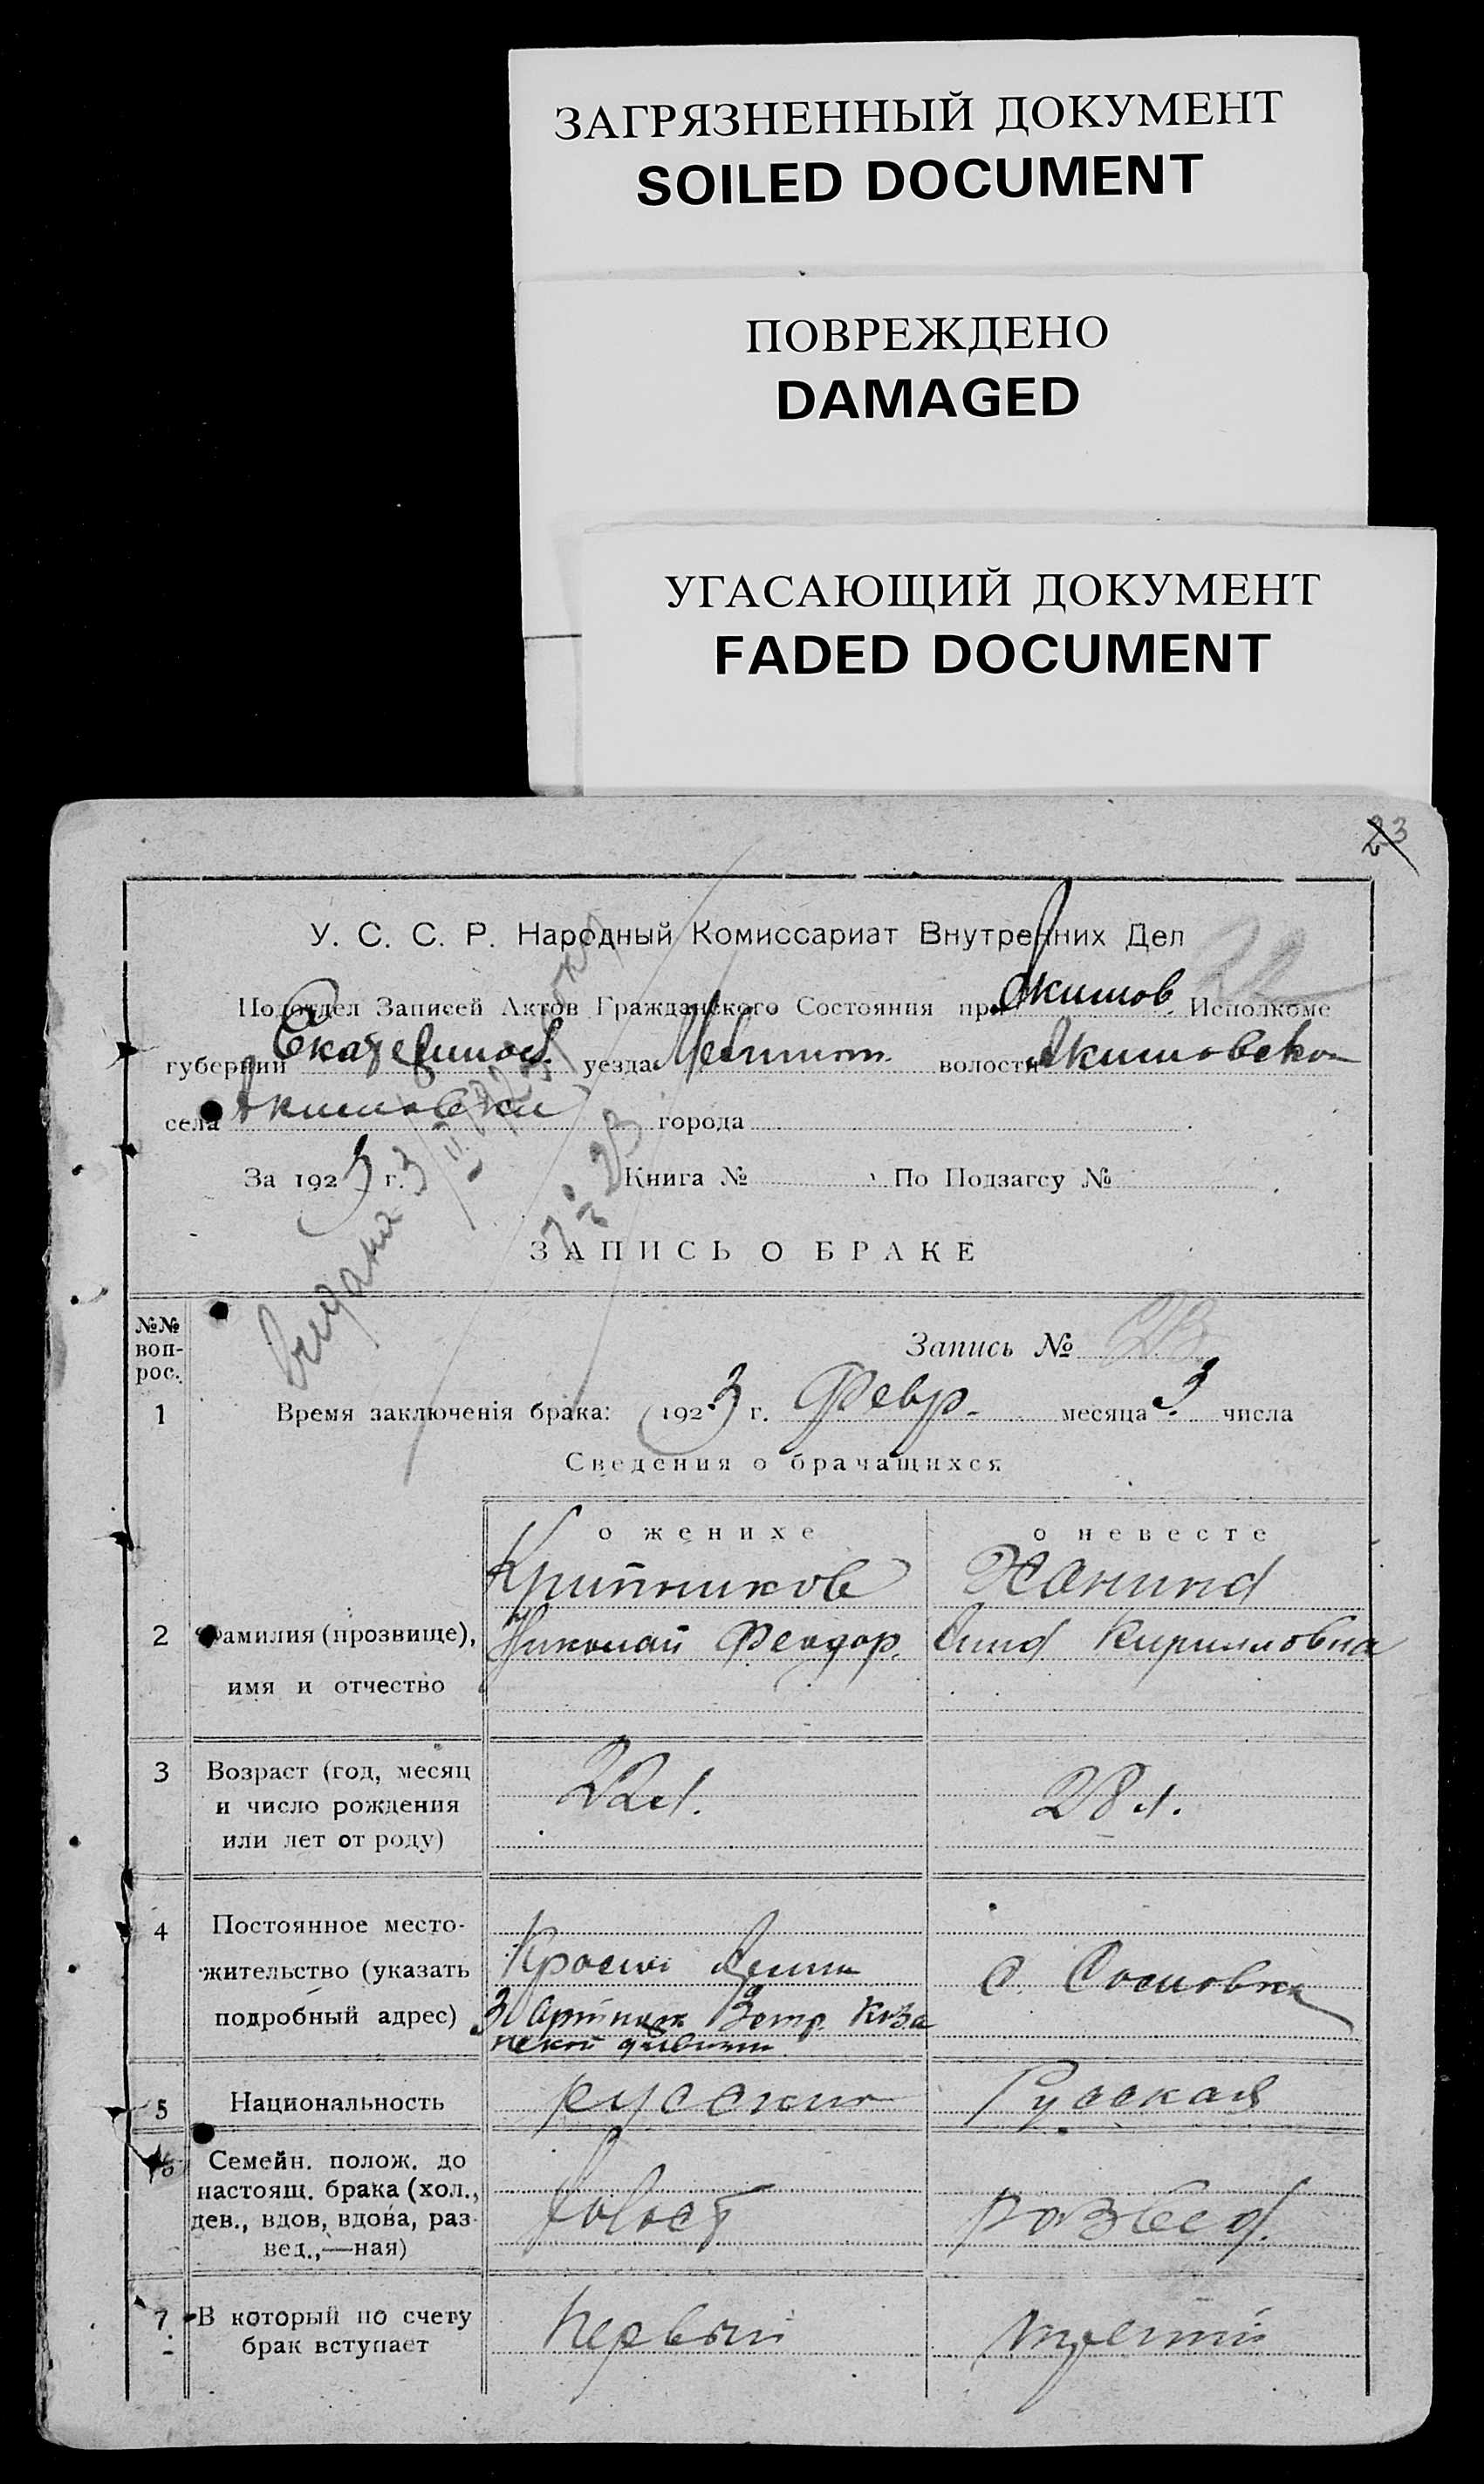 ЗАГРЯЗНЕННЫЙ ДОКУМЕНТ
SOILED DOCUMENT
ПОВРЕЖДЕНО
DAMAGED
УГАСАЮЩИЙ ДОКУМЕНТ
FADED DOCUMENT
23
У. С. С. Р. Народный Комиссариат Внутренних Дел
22
Подотдел Записей Актов Гражданского Состояния при Акимов. Исполкоме
губернии Екатеринос. уезда Мелитоп. волости Акимовской
села Акимовки города
За 1923 г. Книга № По Подзагсу №
Выдана
ЗАПИСЬ О БРАКЕ
№№ воп-рос.
Запись № 23
1 Время заключенія брака: 1923 г. Февр. месяца 3 числа
Сведения о брачащихся
о женихе о невесте
Ханина
2 Фамилия (прозвище), Николай Феодор. Кирилловна
имя и отчество
3 Возраст (год, месяц
и число рождения 22 л. 28 л.
или лет от роду)
4 Постоянное место-
жительство (указать с. Сосновка
подробный адрес) 3
5 Национальность русский Русская
6 Семейн. полож. до
настоящ. брака (хол.,
дев., вдов, вдова, раз- холост развед.
вед.,—ная)
7 В который по счету первый третий
брак вступает